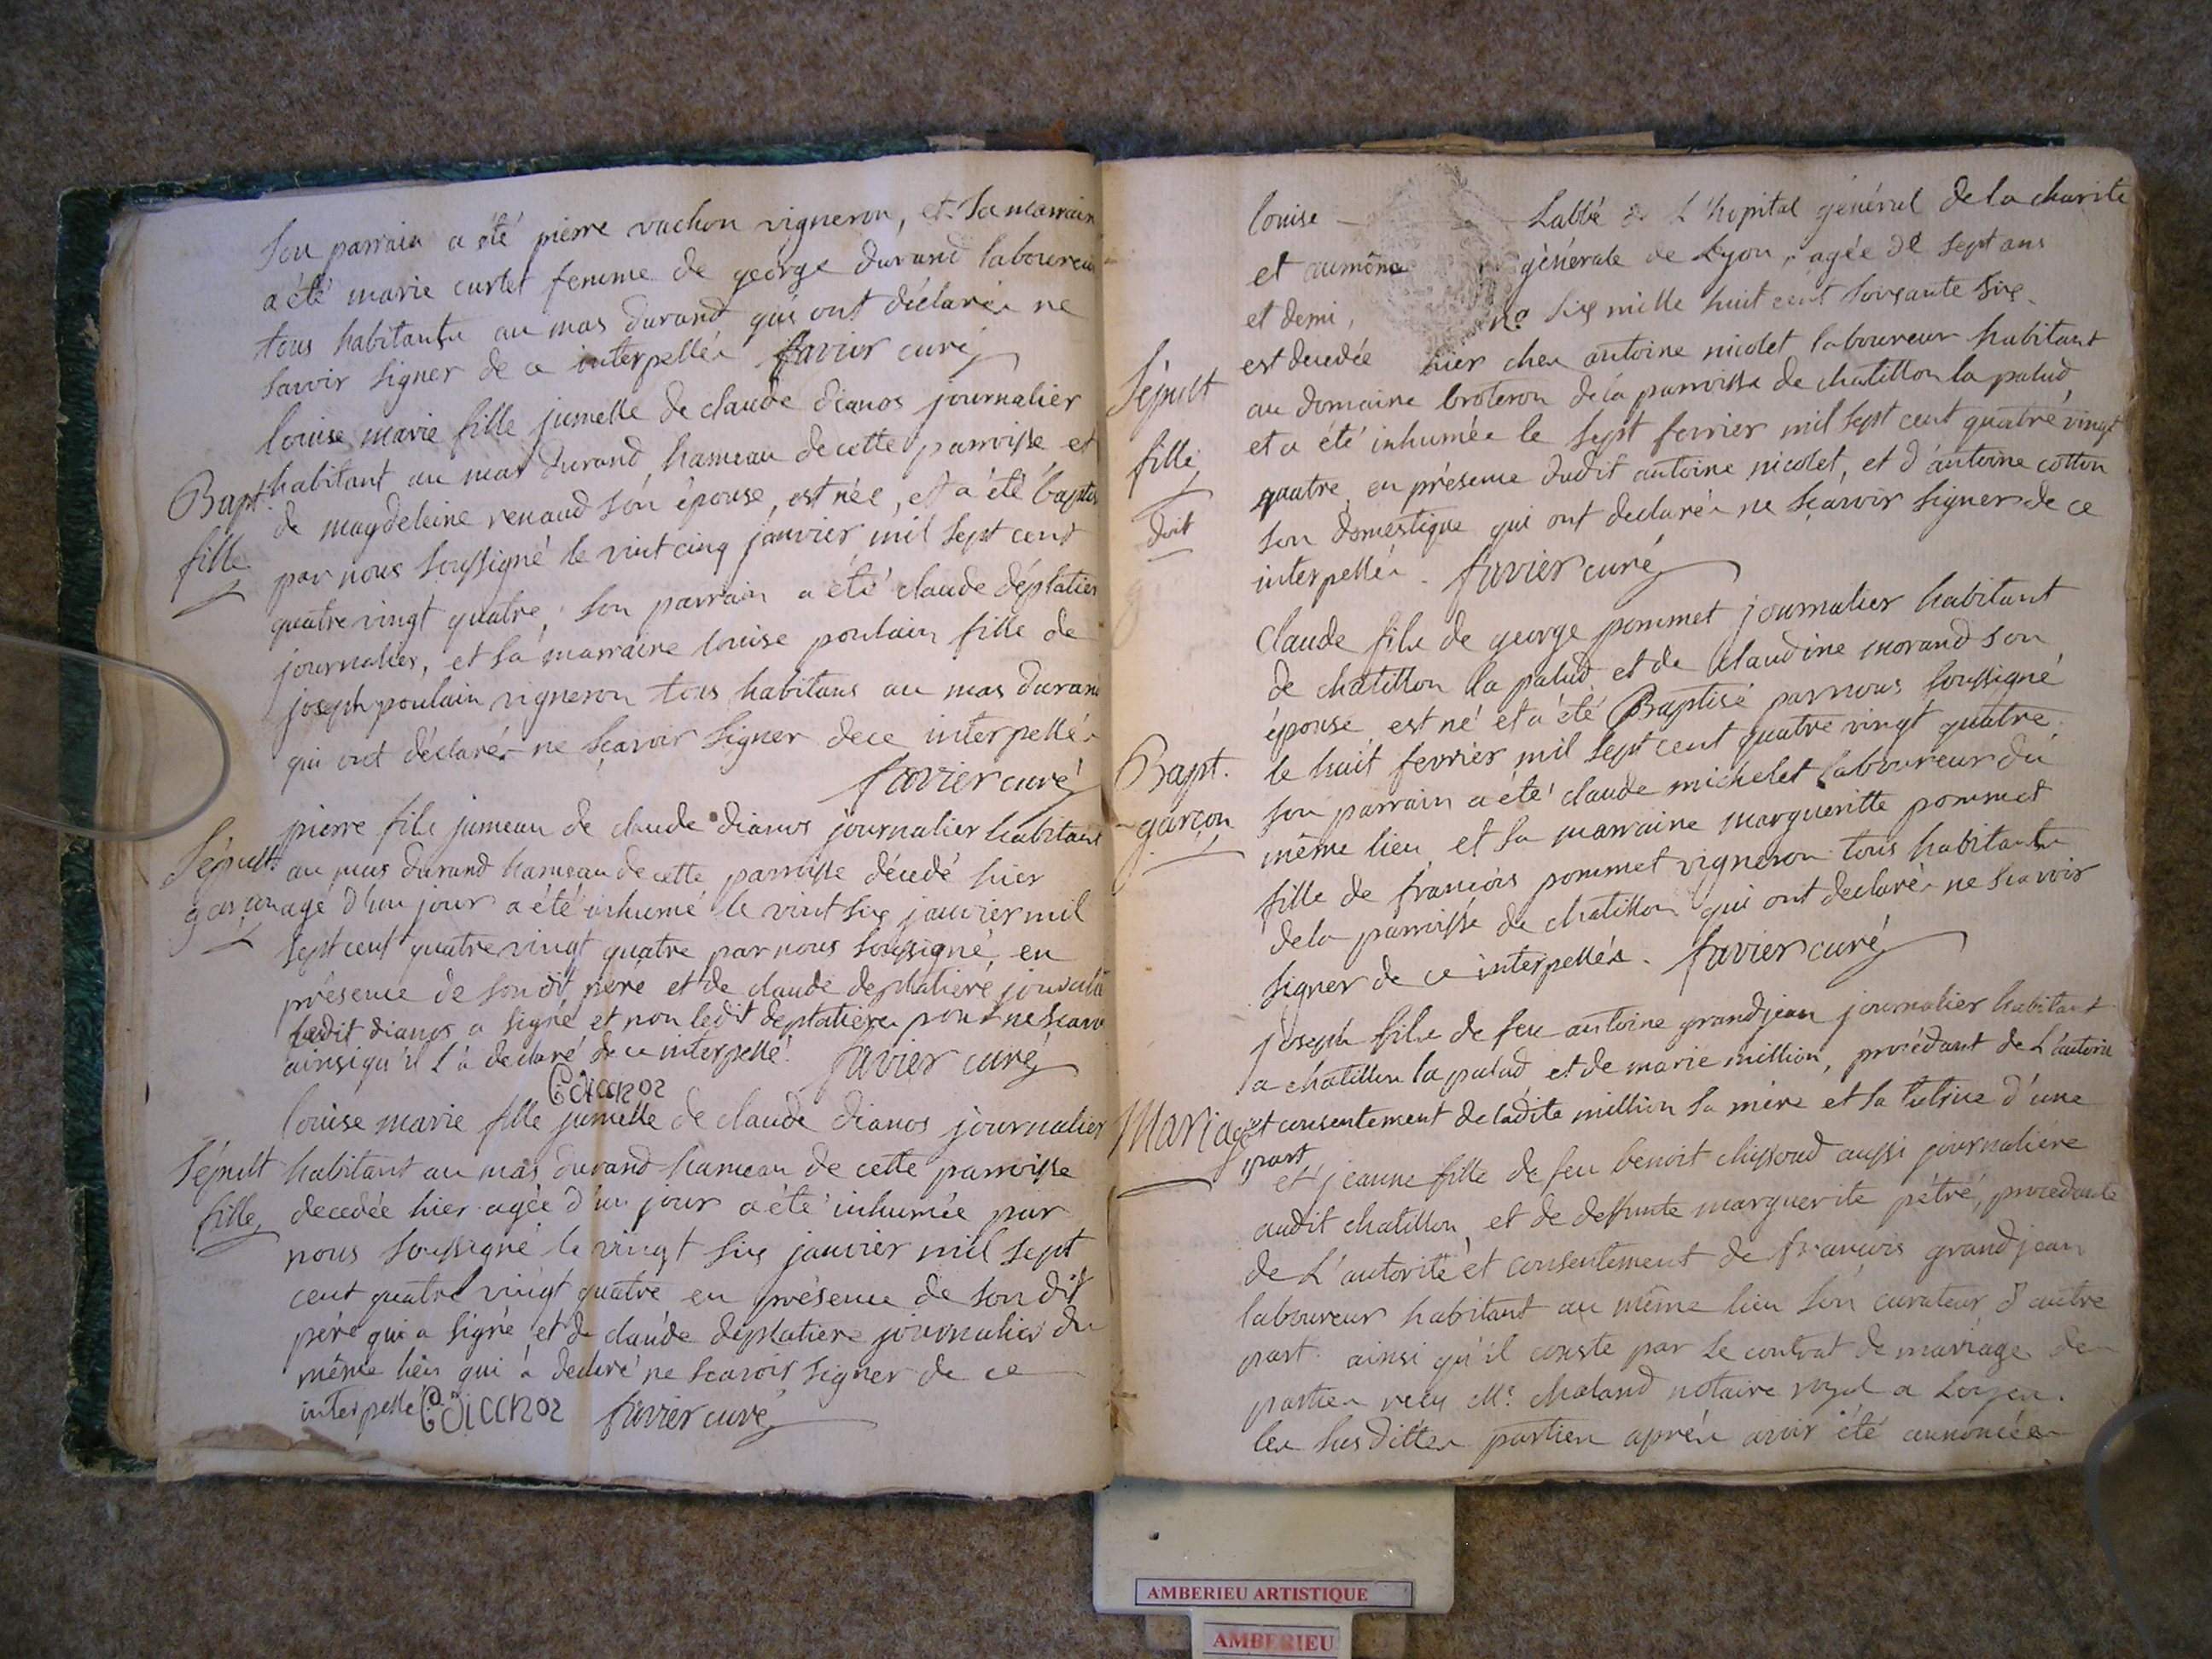 son parrain a été pierre vachon vigneron, et sa marrain
a été marie curtet femme de george durand laboureu
tous habitants au mas durand qui ont déclarés ne
savoir signer de ce interpellés favier curé
louise marie fille jumelle de claude dianos journalier
habitant au mas durand hameau de cette parroisse et
Bapt.
de magdeleine renaud son épouse, est née, et a été baptis
fille
par nous soussigné le vint cinq janvier mil sept cent
quatre vingt quatre, son parrain a été claude déplatier
journalier, et sa marraine louise poulain fille de
joseph poulain vigneron tous habitans au mas durand
qui ont déclarés ne sçavoir signer de ce interpellés
favier curé
pierre fils jumeau de claude dianos journalier habitant
Sépult.
au mas durand hameau de cette parroisse décédé hier
garçon
agé d'un jour a été inhumé le vint six janvier mil
sept cent quatre vingt quatre par nous soussigné, en
présence de son dit pere et de claude deplatiere journali
ledit dianos a signé et non ledit deplatiere pour ne scavo
ainsi qu'il l'a declaré de ce interpellé. favier curé
C dianos
louise marie fille jumelle de claude dianos journalier
Sépult
habitant au mas durand hameau de cette parroisse
fille
decedée hier agée d'un jour a été inhumée par
nous soussigné le vingt six janvier mil sept
cent quatre vingt quatre en présence de son dit
pére qui a signé et de claude déplatiere journalier du
même lieu qui a declaré ne scavoir signer de ce
interpellé C dianos favier curé
louise Labbé de L'hopital général de la charite
et aumône générale de Lyon, agée de sept ans
et demi, no six mille huit cent soixante six
est decedée hier chez antoine nicolet laboureur habitant
Sépult
au domaine broteron de la parroisse de chatillon la palud
et a été inhumée le sept fevrier mil sept cent quatre vingt
fille
quatre, en présence dudit antoine nicolet, et d'antoine cotton
doit
son domestique qui ont declarés ne sçavoir signer de ce
interpellés. favier curé
claude fils de george pommet journalier habitant
de chatillon la palud et de claudine morand son
épouse est né et a été Baptisé par nous soussigné
Bapt.
le huit fevrier mil sept cent quatre vingt quatre
son parrain a été claude michelet laboureur du
garçon
même lieu, et sa marraine margueritte pommet
fille de francois pommet vigneron tous habitants
de la parroisse de chatillon qui ont declarés ne scavoir
signer de ce interpellés. favier curé
joseph fils de feu antoine grandjean journalier habitant
a chatillon la palud et de marie million, procédant de L'autorit
Mariage
et consentement de ladite million sa mére et sa tutrice d'une
part
et jeanne fille de feu benoit chissoud aussi journaliére
audit chatillon, et de deffunte marguerite pétré, procedante
de L'autorité et consentement de francois grandjean
laboureur habitant au même lieu son curateur d'autre
part. ainsi qu'il conste par le contrat de mariage des
parties reçu Me. chaland notaire royal a Loyes.
les susdittes parties aprés avoir été annoncées
AMBERIEU ARTISTIQUE
AMBERIEU